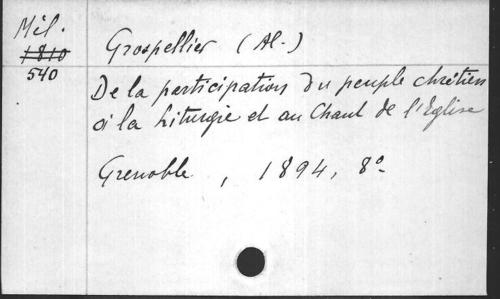 Mél.
1810
540
Grospellier (Al.)
De la participation du peuple chrétien
à la Liturgie et au Chant de l'Eglise
Grenoble, 1894, 8°